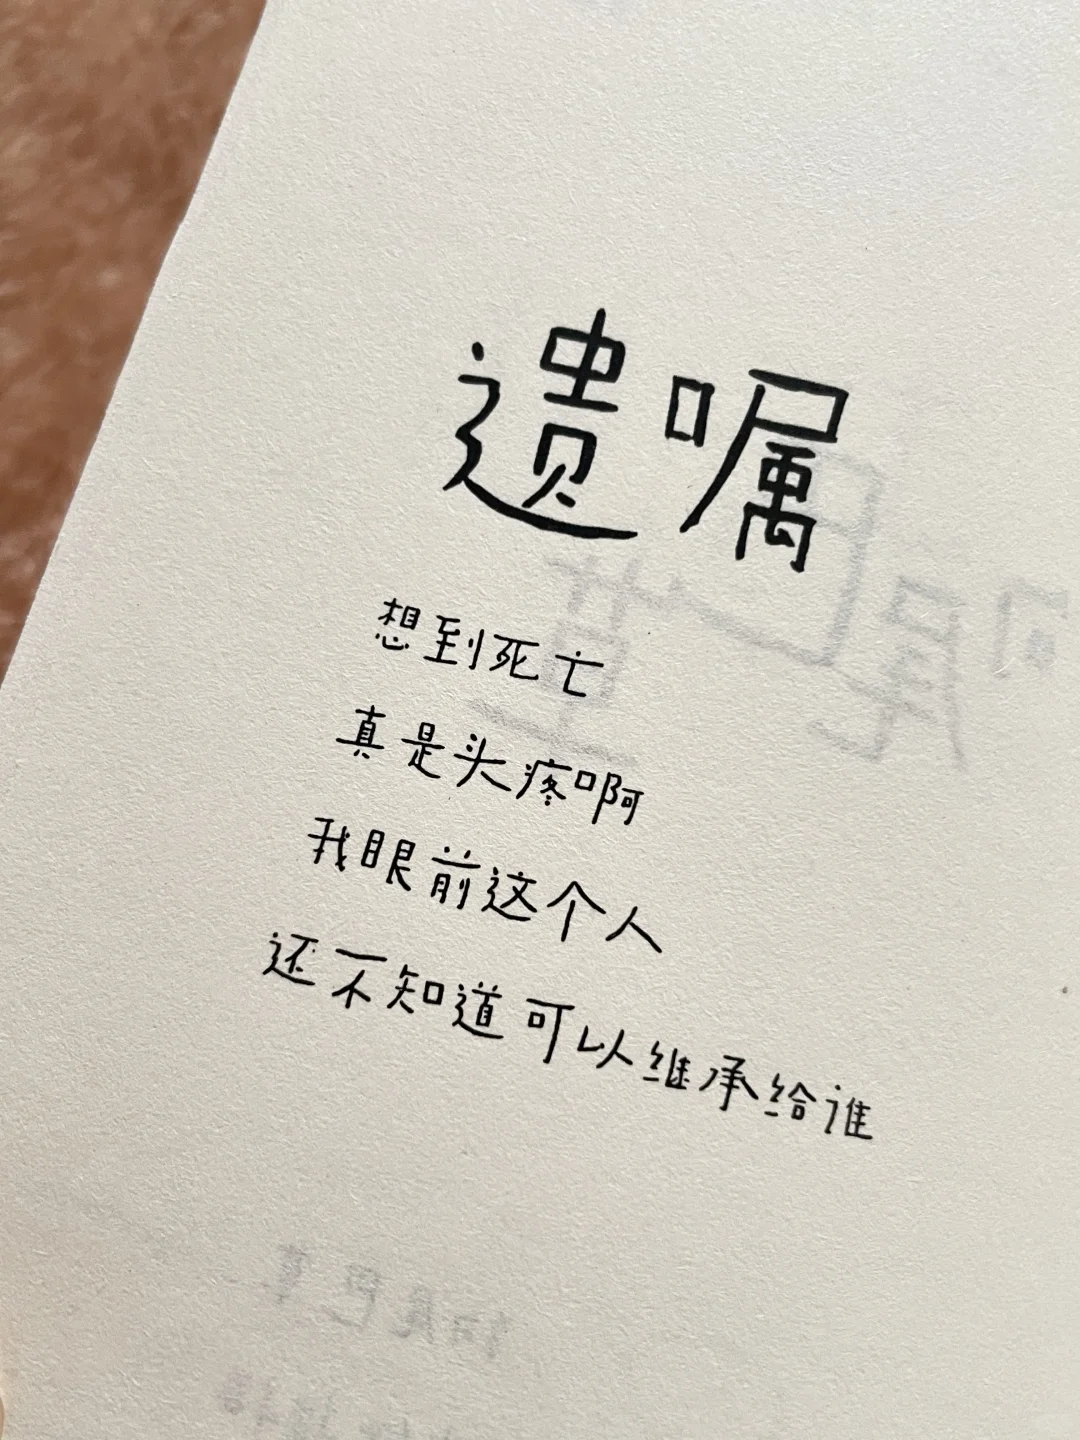 遗嘱
想到死亡
真是头疼啊
我眼前这个人
还不知道可以继承给谁